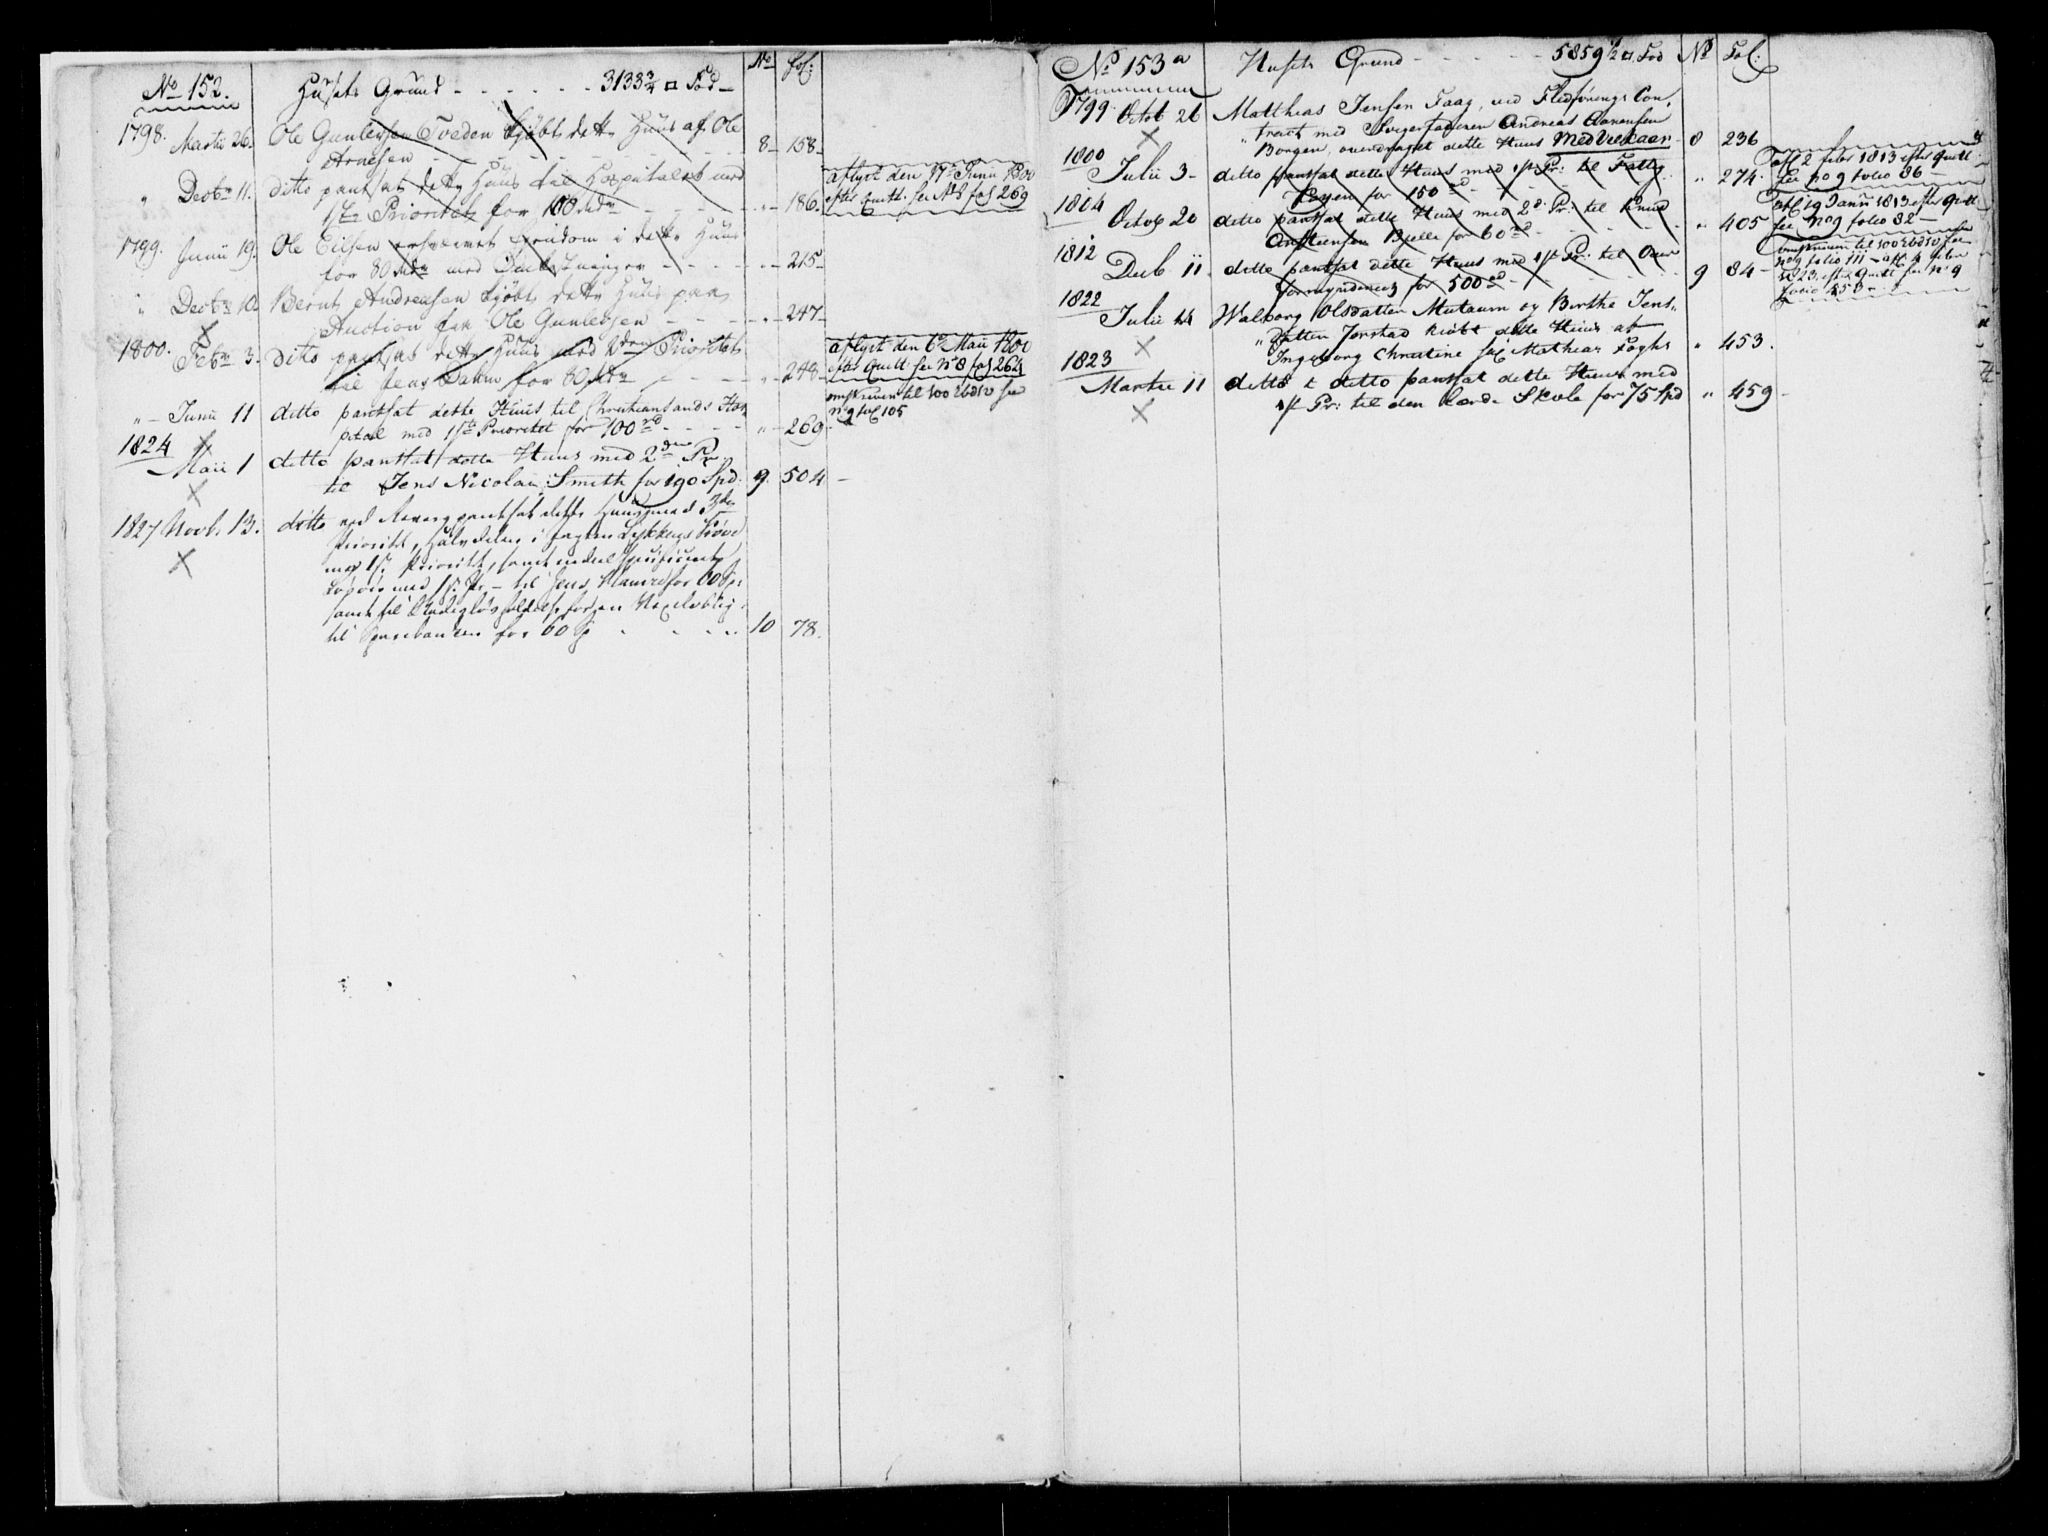 No 152. Husets Grund - - - - - - 3133 3/4 □ Fod - No fol:
1798. Martii 26. Ole Gunlevsen Tveden kjøbt dette Huus af Ole
Arnesen - - - - 8 - 158 -
" Decbr 11. ditto pantsat dette Huus til Hospitalet med
1ste Prioritet for 100 rdr - - - " - 186.
aflyst den 17de Junii 1800
efter Quitt. see No 8 fol 269
1799. Junii 19. Ole Eilsen erhvervet Eiendom i dette Huus
for 80 rdr med - - - - " - 215 -
" Decbr 10. Bernt Andreasen kjøbt dette Huus paa
Auction fra Ole Gunlevsen - - - " - 247 -
1800. Febr 3. ditto pantsat dette Huus med 2den Prioritet
til Jens Dahm for 80 rdr - - " - 248 -
aflyst den 6te Maii 1800
efter Quitt see No 8 fol 264
" - Junii 11 ditto pantsat dette Huus til Christiansands Hos
pital med 1ste Prioritet for 100 rd - - - " - 269 -
omskreven til 100 rbd sv see
No 9 fol 105
1824 Maii 1 ditto pantsat dette Huus med 2den Pr.
til Jens Nicolai Smith for 190 Spd: 9. 504 -
1827 Novb. 13. ditto ved pantsat dette Huus med 3die
Prioritet, Halvdelen i Jagten Lykkens Prøve
med 1st. Prioritet, samt endeel specificerede
Løsøre med 1st. Pr - til Jens for 60 Sp:
samt til for en
til Sparebanken for 60 Sp - - - 10 78.
No 153 a Husets Grund - - - - - 5859 1/2 □ Fod No Fol:
1799 Octob 26 Matthias Jensen Faag, ved Fledførings Con,
tract med Svigerfaderen Andreas Aanensen
Borgen, overdraget dette Huus Med Veekaar - 8 236
1800 Julii 3 - ditto pantsat dette Huus med 1st Pr: til Fattig
Cassen for 150 rd - - - " 274 -
afl 2 febr 1813 efter Quitt
see No 9 folio 86 -
1804 Octob 20 ditto pantsat dette Huus med 2d Pr: til Knud
Anstensen Bielle for 60 rd - - - " 405
afl 19 Janu 1813 efter Quitt
see No 9 folio 82 -
1812 Decb 11 - ditto pantsat dette Huus med 1st Pr: til Over
formynderiet for 500 rd - - - 9 84 -
omskreven til 100 rbd sv see
No 9 folio 111 - afl 4 febr
1823. efter Quitt see No 9
folio 458 -
1822 Julii 14 Walborg Olsdatter Mutaurn og Birthe Jens,
" datter Jorstad kiøbt dette Huus af
Ingeborg Christine sal Mathias Foghs " 453.
1823 Martii 11 ditto & ditto pantsat dette Huus med
1st Pr: til den lærde Skole for 75 Spd " 459 -